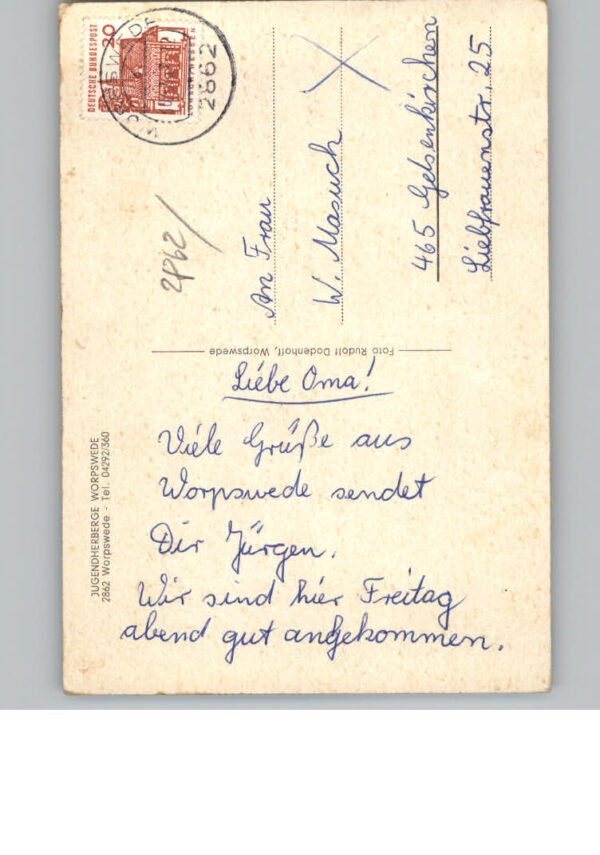 DEUTSCHE BUNDESPOST
20
WORPSWEDE
2862
2862/
An Frau
W. Masuch
465 Gelsenkirchen
Liebfrauenstr. 25
Foto Rudolf Dodenhoff, Worpswede
JUGENDHERBERGE WORPSWEDE
2862 Worpswede - Tel. 04292/360
Liebe Oma!
Viele Grüße aus
Worpswede sendet
Dir Jürgen.
Wir sind hier Freitag
abend gut angekommen.